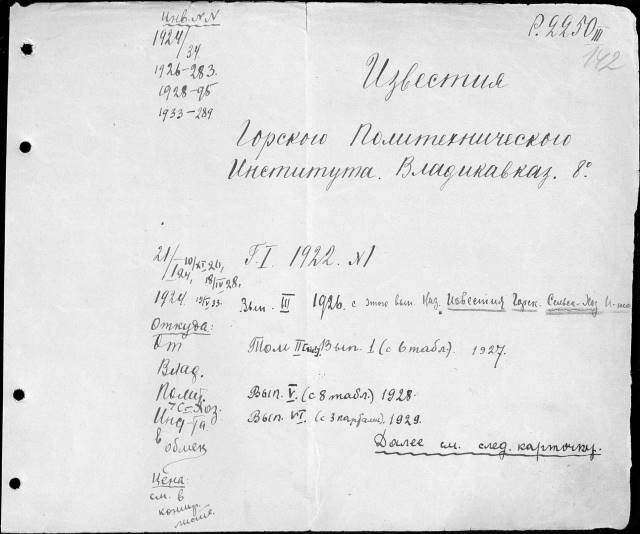 Инв. N N
P.2250 III
142
1924/34
1926-283.
1928-95
1933-289
Известия
Горского Политехнического
Института. Владикавказ. 8º.
21/I 24, 10/XI 26,
18/IV 28,
1924. 13/II 33.
Г. I. 1922. N 1
Вып. III 1926. с этого вып. Наз. Известия Горск. Сельск-Хоз. И-та
Откуда:
От
Влад.
Полит.
Инст-та
в
обмен
Том II Вып. 1 (с 6 табл). 1927.
Вып. V. (с 8 табл.) 1928.
Вып. VI. (с 3 картами). 1929.
Далее см. след. карточку.
Цена:
см. в
контр.
листе.